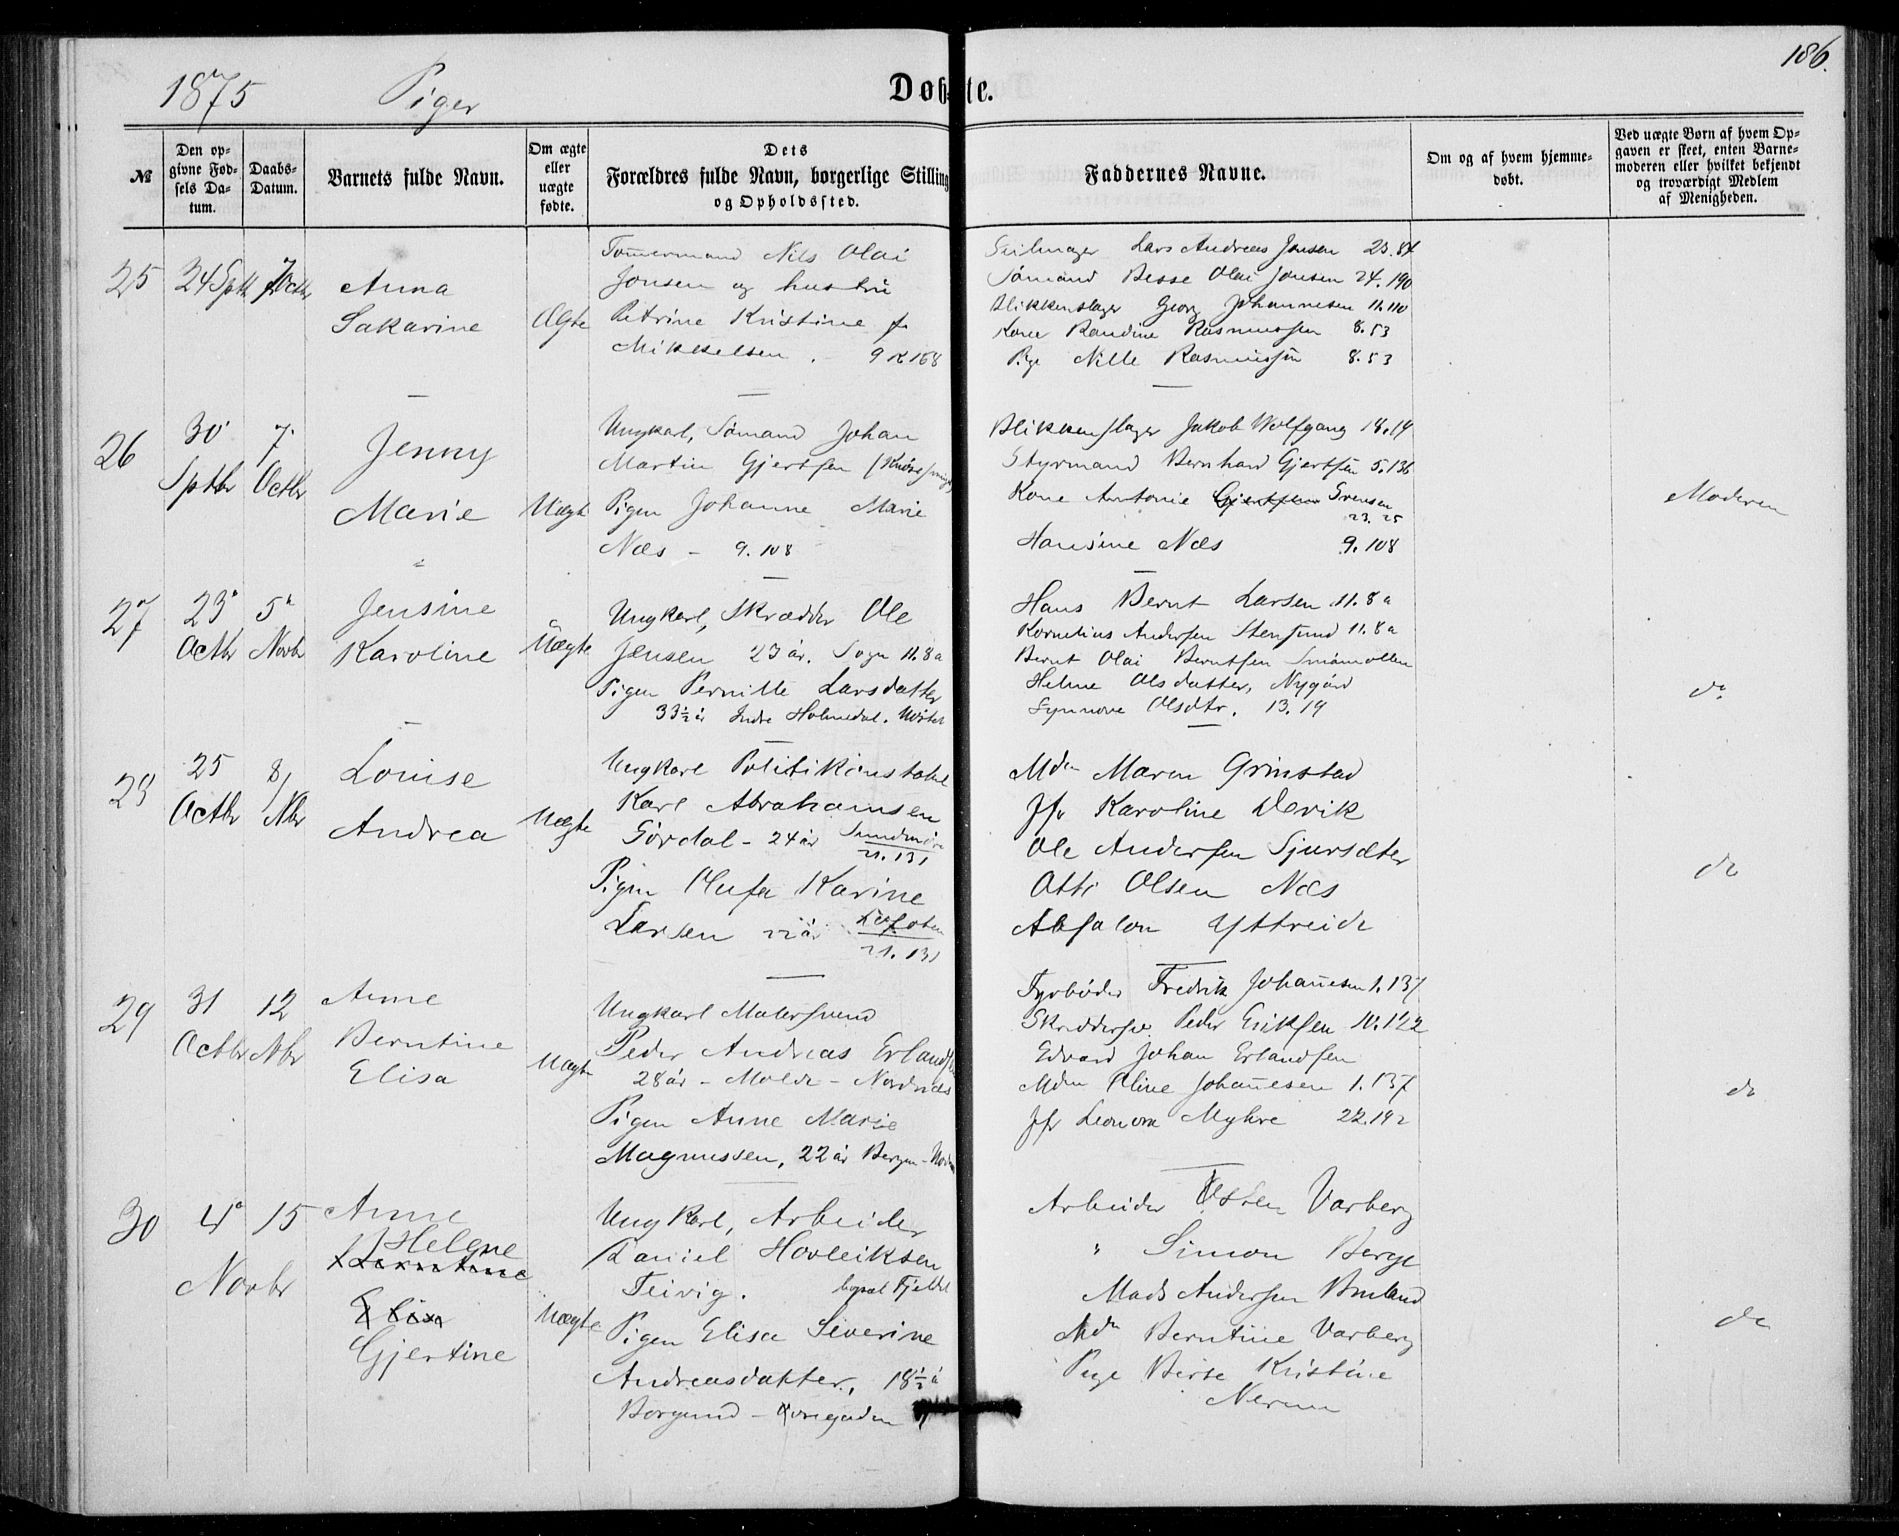 1875 Piger Døbte. 186.
№
Den opgivne Fødsels Datum.
Daabs-Datum.
Barnets fulde Navn.
Om ægte eller uægte fødte.
Dets
Forældres fulde Navn, borgerlige Stilling
og Opholdssted.
Faddernes Navne.
Om og af hvem hjemmedøbt.
Ved uægte Børn af hvem Opgaven er skeet, enten Barnemoderen eller hvilket bekjendt og troværdigt Medlem af Menigheden.
25 24 Sptb 7 Octbr Anna
Sakarine
Ægte
Tømermand Nils Olai
Jonsen og hustru
Petrine Kristine f.
Mikkelsen. 9 R 168
Seilmager Lars Andreas Jensen 23.84
Sømand Besse Olai Jonsen 24.190
Blikkenslager Georg Johannesen 11.110
Kone Randine Rasmussen 8.53
Pige Nille Rasmussen 8.53
26 30 Sptbr 7 Octbr
Jenny
Marie
Uægte
Ungkarl, Sømand Johan
Martin Gjertsen
Pigen Johanne Marie
Næs - 9.108
Blikkenslager Jakob Wolfgang 18.19
Styrmand Bernhard Gjertsen 5.136
Kone Antonie Gjertsen Svensen
23.25
Hansine Næs 9.108
Moderen
27 23 Octbr 5 Novbr
Jensine
Karoline
Uægte
Ungkarl, Skrædder Ole
Jensen 23 år. Sogn 11.8a
Pigen Pernille Larsdatter
33½ år Indre Holmedal.
Hans Bernt Larsen 11.8a
Kornelius Andersen Stensund 11.8a
Bernt Olai Berntsen Småmøllen
Helene Olsdatter, Nygård
Synnove Olsdtr. 13.19
do
28 25 Octbr 8/ Nbr
Louise
Andrea
Uægte
Ungkarl Politikonstabel
Karl Abrahamsen
Gørdal - 24 år Søndmøre
21.131
Pigen Olufa Karine
Larsen 22 år Lofoten
21.131
Mdm Maren Grimstad
Jfr Karoline Devik
Ole Andersen Sjursæter
Otto Olsen Næs
Absalon Yttreide
do
29 31 Octbr 12 Nbr
Anne
Berntine
Elisa
Uægte
Ungkarl Malersvend
Peder Andreas Erlandsen
28 år - Molde - Nordnæs
Pigen Anne Marie
Magnussen, 22 år Bergen
Fyrbøder Fredrik Johannesen 1.137
Skræddersv. Peder Eriksen 10.122
Edvard Johan Erlandsen
Mdm Oline Johannesen 1.137
Jfr Leonora Myhre 22.192
do
30 4 Novbr 15
Anne
Helene
Berntine
Elisa
Gjertine
Uægte
Ungkarl, Arbeider
Daniel Hovleiksen
Teivig.
Pigen Elisa Severine
Andreasdatter, 18½ å
Borgund
Arbeider Østen Varberg
" Simon Berge
Mads Andersen
Mdm Berntine Varberg
Pige Berte Kristine
Nerem
do